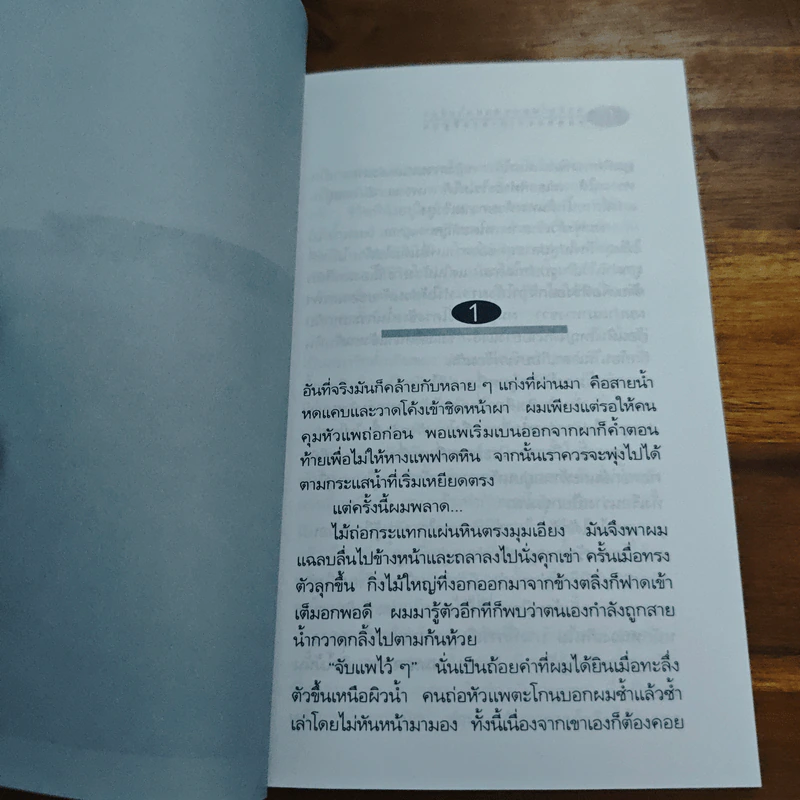 1
อันที่จริงมันก็คล้ายกับหลาย ๆ แก่งที่ผ่านมา คือสายน้ำ
หดแคบและวาดโค้งเข้าชิดหน้าผา ผมเพียงแต่รอให้คน
คุมหัวแพถ่อก่อน พอแพเริ่มเบนออกจากผาก็ค้ำตอน
ท้ายเพื่อไม่ให้หางแพฟาดหิน จากนั้นเราควรจะพุ่งไปได้
ตามกระแสน้ำที่เริ่มเหยียดตรง
แต่ครั้งนี้ผมพลาด...
ไม้ถ่อกระแทกแผ่นหินตรงมุมเอียง มันจึงพาผม
แฉลบลื่นไปข้างหน้าและถลาลงไปนั่งคุกเข่า ครั้นเมื่อทรง
ตัวลุกขึ้น กิ่งไม้ใหญ่ที่งอกออกมาจากข้างตลิ่งก็ฟาดเข้า
เต็มอกพอดี ผมมารู้ตัวอีกทีก็พบว่าตนเองกำลังถูกสาย
น้ำกวาดกลิ้งไปตามก้นห้วย
“จับแพไว้ ๆ” นั่นเป็นถ้อยคำที่ผมได้ยินเมื่อทะลึ่ง
ตัวขึ้นเหนือผิวน้ำ คนถ่อหัวแพตะโกนบอกผมซ้ำแล้วซ้ำ
เล่าโดยไม่หันหน้ามามอง ทั้งนี้เนื่องจากเขาเองก็ต้องคอย